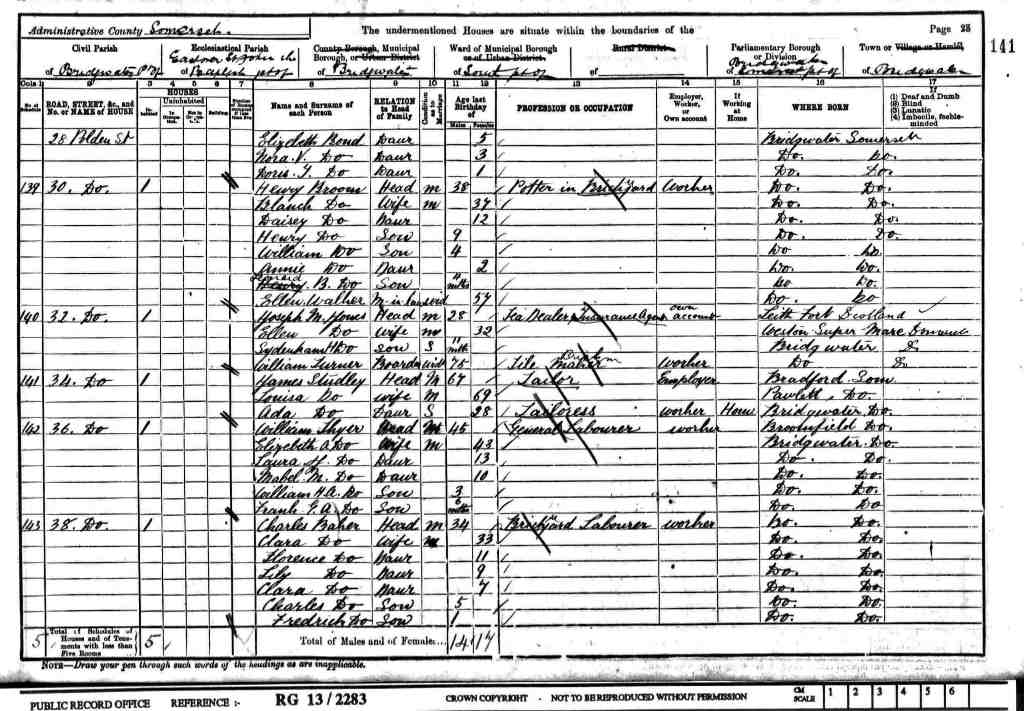 Administrative County Somerset.
The undermentioned Houses are situate within the boundaries of the
Page 25
141
Civil Parish
Ecclesiastical Parish
County Borough, Municipal Borough, or Urban District
Ward of Municipal Borough or of Urban District
Rural District
Parliamentary Borough or Division
Town or Village or Hamlet
of Bridgwater
of Bridgwater
of South pt of
of
Bridgwater pt of
of Bridgwater
Cols 1
ROAD, STREET, &c., and No. or NAME of HOUSE
HOUSES
Uninhabited
Building
Name and Surname of each Person
RELATION to Head of Family
Condition as to Marriage
Age last Birthday of
Males
Females
PROFESSION OR OCCUPATION
Employer, Worker, or Own account
If Working at Home
WHERE BORN
If (1) Deaf and Dumb (2) Blind (3) Lunatic (4) Imbecile, feeble-minded
28 Polden St Elizabeth Bond Daur 5 Bridgwater Somerset
Nora V. Do Daur 3 Do. Do.
Doris Do Daur 1 Do. Do.
139 30. Do. 1 Henry Broom Head m 38 Potter in Brickyard Worker Do. Do.
Blanch Do Wife m 37 Do. Do.
Daisey Do Daur 12 Do. Do.
Henry Do Son 9 Do. Do.
William Do Son 4 Do Do.
Annie Do Daur 2 Do. Do.
Leonard B. Do Son mths Do Do.
Ellen Walker M. in law wid 57 Do. Do
140 32. Do. 1 Joseph M. Jones Head m 28 Tea Dealer & Insurance Agent own account Leith Fort Scotland
Ellen Do Wife m 32 Weston Super Mare Somerset
Sydenham H Do Son S 11 mth Bridgwater Do
William Turner Boarder wid 75 Tile Maker Worker Do Do
141 34. Do 1 James Studley Head M 67 Tailor Employer Bradford Som
Louisa Do wife m 69 Pawlett, Do.
Ada Do Daur S 28 Tailoress worker Home Bridgwater, Do.
142 36. Do 1 William Thyer Head M 45 General Labourer worker Broomfield Do
Elizabeth A Do Wife m 43 Bridgwater. Do
Laura Do Daur 13 Do. Do.
Mabel M. Do Daur 10 Do. Do.
William H. A. Do Son 3 Do. Do.
Frank G. A. Do Son 6 mths Do. Do.
143 38. Do. 1 Charles Baker Head m 34 Brickyard Labourer worker Do. Do.
Clara Do. Wife m 33 Do. Do.
Florence Do Daur 11 Do. Do.
Lily Do Daur 9 Do. Do.
Clara Do Daur 7 Do. Do.
Charles Do Son 5 Do. Do.
Fredrich Do Son 1 Do. Do.
5 Total of Schedules of Houses and of Tenements with less than Five Rooms 5 Total of Males and of Females... 14 17
NOTE—Draw your pen through such words of the headings as are inapplicable.
PUBLIC RECORD OFFICE REFERENCE :- RG 13/2283 CROWN COPYRIGHT - NOT TO BE REPRODUCED WITHOUT PERMISSION CM SCALE 1 2 3 4 5 6